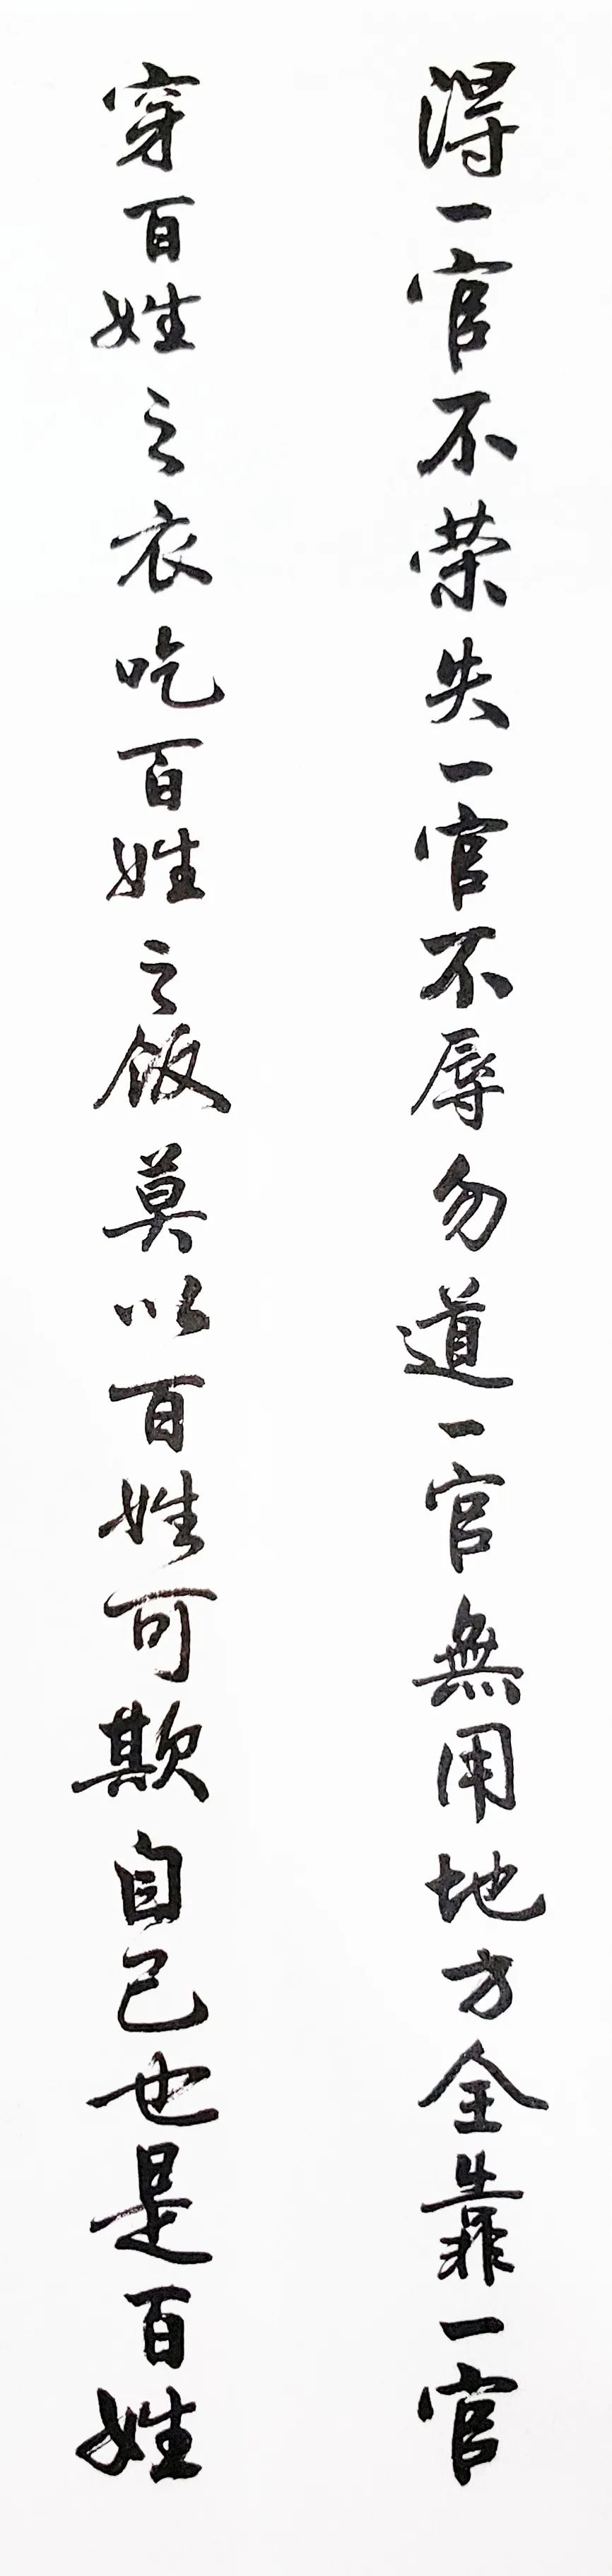 得一官不荣失一官不辱勿道一官無用地方全靠一官
穿百姓之衣吃百姓之饭莫以百姓可欺自己也是百姓